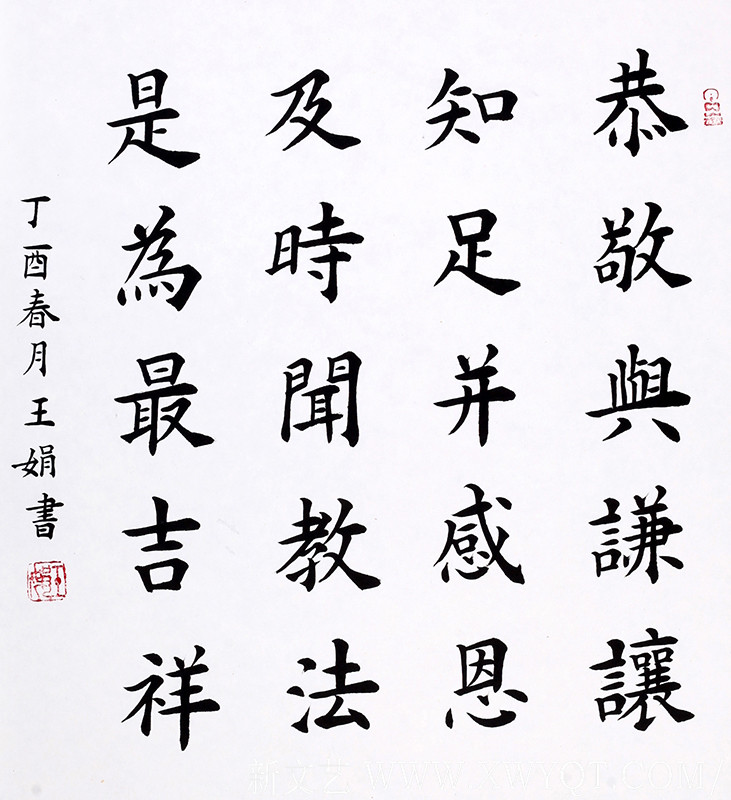 恭敬與謙讓
知足并感恩
及時聞教法
是為最吉祥
丁酉春月王娟書
王娟
新文艺 WWW.XWYQT.COM